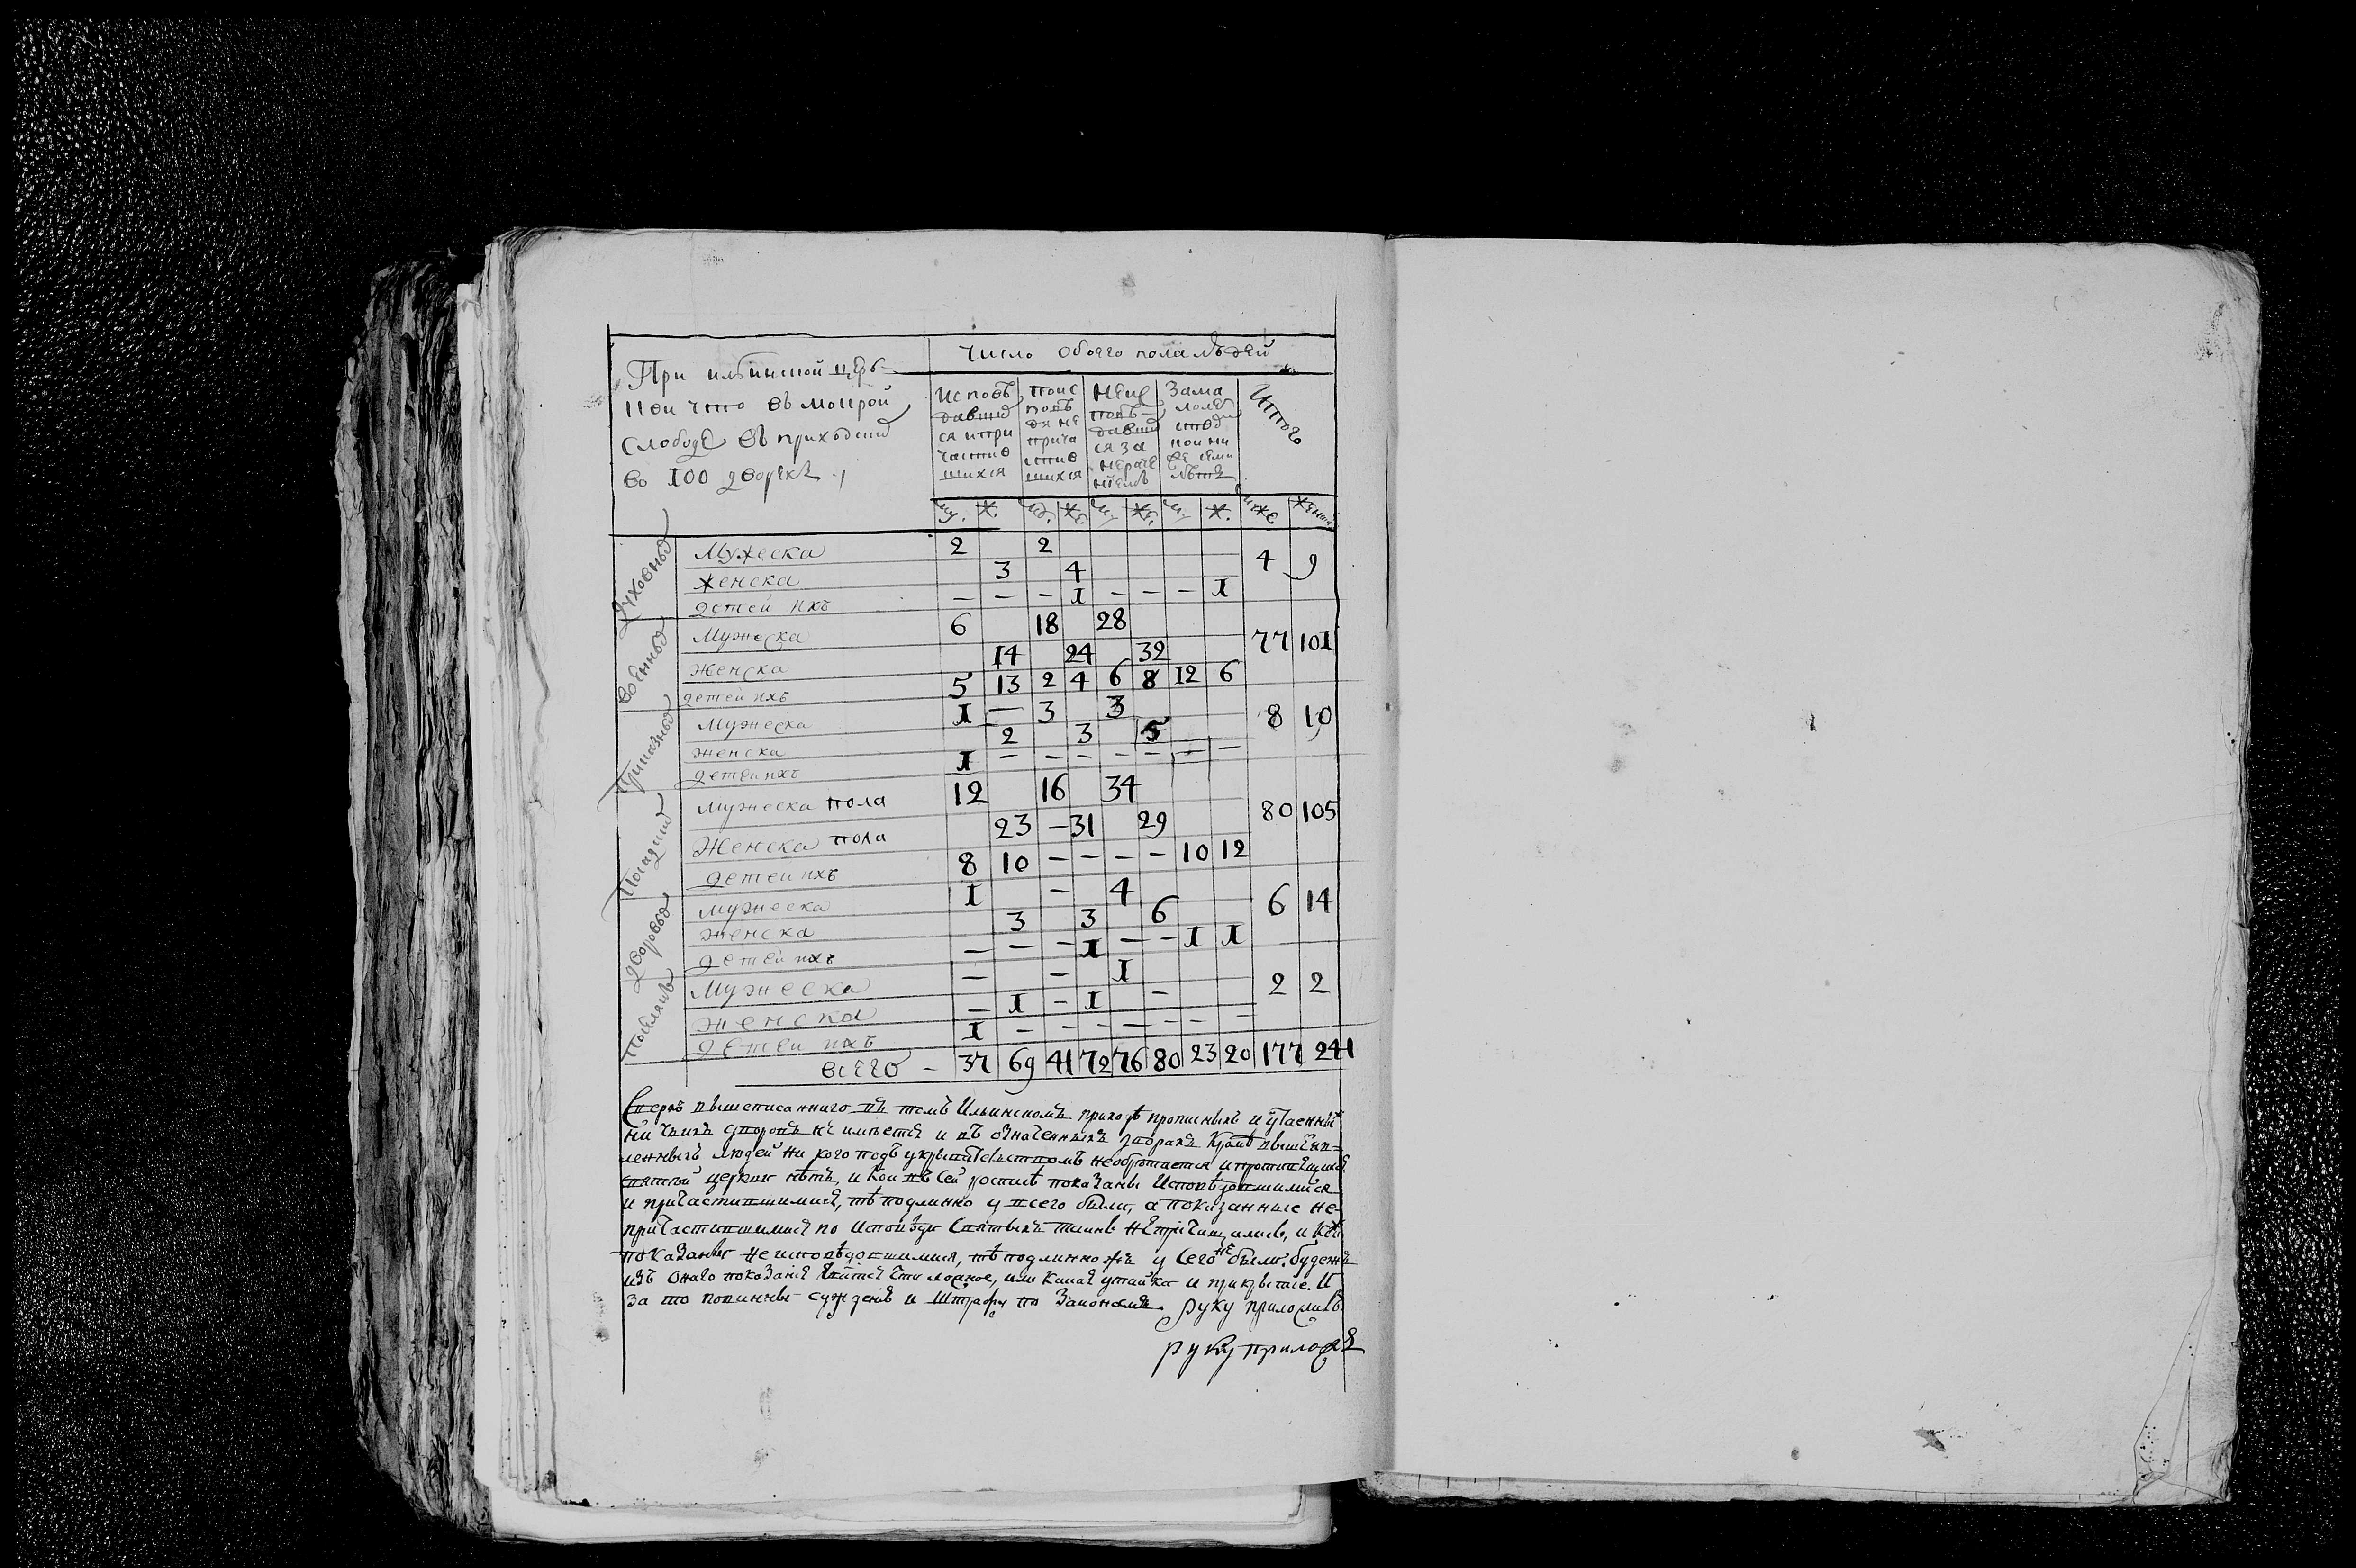 Число обоего пола людей
При ильинской церь-
кви что въ мокрой
слободе въ приходски
во 100 дворехъ
Исповѣ
давши
ся и при
частив
шихся
поис
повѣ
да не
прича
стив
шихся
Неис
повѣ-
давши
ся за
нераче
ниемъ
Зама
лолет
ством
кои ни
же семи
лѣтъ
Итого
му. ж. му. же. му же. му ж. муже женска
Духовныя
Мужеска 2 2 4 9
женска 3 4
детей ихъ — — — 1 — — — 1
Военныя
Мужеска 6 18 28 77 101
женска 14 24 32
детей ихъ 5 13 2 4 6 8 12 6
Приказныя
Мужеска 1 — 3 3 8 10
женска 2 3 5
детей ихъ 1 — — — — — — —
Посадцкия
Мужеска пола 12 16 34 80 105
Женска пола 23 — 31 29
детей ихъ 8 10 — — — — 10 12
Дворовыя
мужеска 1 — 4 6 14
женска 3 3 6
детей ихъ — — — 1 — — 1 1
Поселянъ
Мужеска — — 1 2 2
женска — 1 — 1 —
детей ихъ 1 — — — — — — —
всего — 37 69 41 72 76 80 23 20 177 241
Сверхъ вышеписанного въ томъ Ильинскомъ приходѣ прописныхъ и утаенных
ни чьихъ дворовъ не имѣется и въ означенныхъ дворахъ кромѣ вышеяв-
ленныхъ людей ни кого подъ укрывательствомъ необрѣтается и противящихся
святой церкви нѣтъ, и кои въ сей росписѣ показаны исповѣдовшимися
и причастившимися, тѣ подлинно у всего были, а показанные не-
причастившимися по исповѣди святыхъ таинъ непричащались, и кои
показаны неисповѣдовшимися, тѣ подлинно жъ у сего не были. будежъ
изъ онаго показания явится что ложное, или какая утайка и прикрытие. И
за то повинны суждению и штрафу по законамъ. руку приложилъ
руку приложилъ